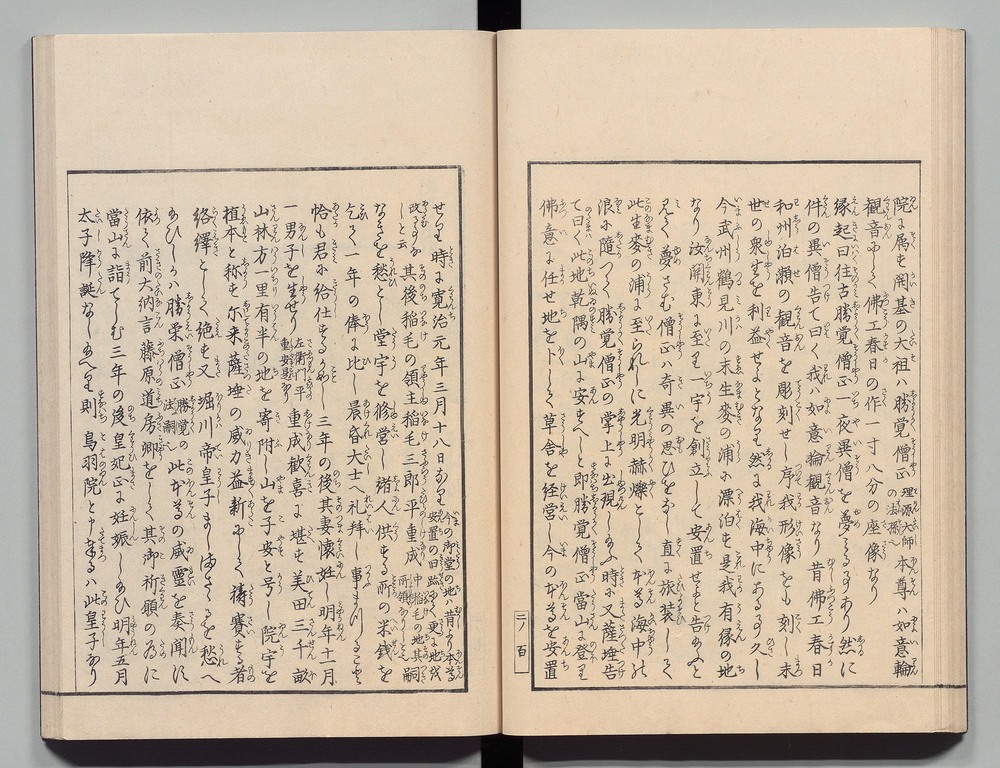 院に属す開基の大祖ハ勝覚僧正理源大師の法孫なり本尊ハ如意輪
観音にして佛工春日の作一寸八分の座像なり
縁起曰往古勝覚僧正一夜異僧を夢みる事あり然に
件の異僧告て曰く我ハ如意輪観音なり昔佛工春日
和州泊瀬の観音を彫刻せし序我形像をも刻し末
世の衆生を利益せよとなり然るに我海中にある事久し
今武州鶴見川の末生麥の浦に漂泊す是我有縁の地
なり汝関東に至り一宇を創立して安置せよと告給ふと
見て夢さむ僧正ハ奇異の思ひをなし直に旅装して
此生麥の浦に至られしに光明赫爍として本尊海中の
浪に随つて勝覚僧正の掌上に出現し給ふ時に又薩埵告
て曰く此地乾隅の山に安すへしと即勝覚僧正當山に登り
佛意に任せ地を卜して草舎を経営し今の本尊を安置
二ノ百
せり時に寛治元年三月十八日なり今の御堂の地ハ昔より本尊安置の旧跡にして更に地を改る事なしと云
其後稲毛の領主稲毛三郎平重成中稲毛の地其所領なりしと云嗣
なきを愁とし堂宇を修営し諸人供する所の米銭を
乞て一年の俸に比し晨昏大士へ礼拝し事まつること
恰も君に給仕するかことし三年の後其妻懐妊し明年十二月
一男子を生せり左衛門平重安是なり重成歓喜に堪す美田三千畝
山林方一里有半の地を寄附し山を子安と号し院宇を
植本と称す尓来薩埵の威力益新にして祷賽する者
絡繹として絶す又堀川帝皇子ましまさゝるを愁へ
給ひしかハ勝栄僧正勝覚の法嗣なり此本尊の威霊を奏聞に
依て前大納言藤原道房卿をして其御祈願の為に
當山に詣てしむ三年の後皇妃正に妊娠し給ひ明年五月
太子降誕なし給へり則鳥羽院と申奉るハ此皇子なり